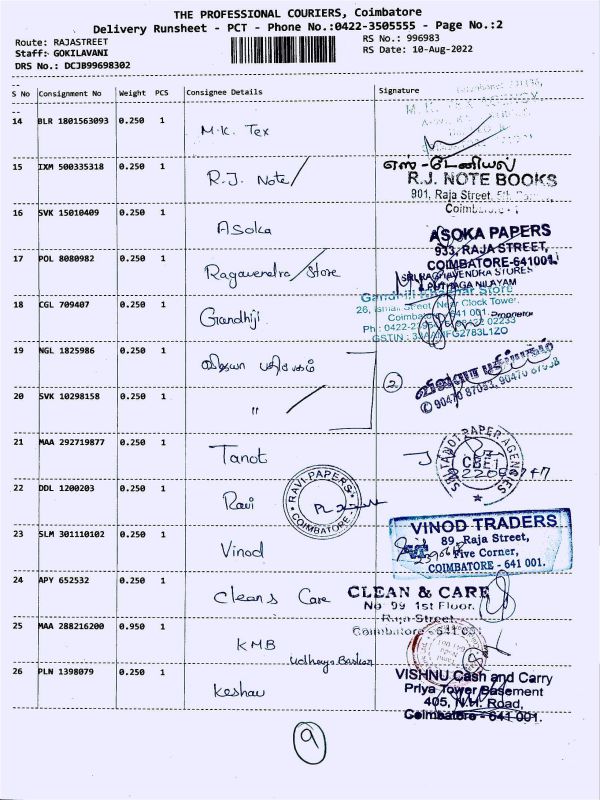 THE PROFESSIONAL COURIERS, Coimbatore
Delivery Runsheet - PCT - Phone No.:0422-3505555 - Page No.:2
Route: RAJASTREET
RS No.: 996983
Staff: GOKILAVANI
RS Date: 10-Aug-2022
DRS No.: DCJB99698302
S No Consignment No Weight PCS Consignee Details Signature
14 BLR 1801563093 0.250 1 M.K. Tex
15 IXM 500335318 0.250 1 R.J. Note
எஸ் -டேனியல்
R.J. NOTE BOOKS
901, Raja Street,
16 SVK 15010409 0.250 1 Asoka
ASOKA PAPERS
933, RAJA STREET,
COIMBATORE-641001
17 POL 8080982 0.250 1 Ragavendra Store
SRI RAGHAVENDRA STORES
NILAYAM
18 CGL 709407 0.250 1 Gandhiji
Store
Near Clock Tower,
Coimbatore 641 001.
Proprietor
19 NGL 1825986 0.250 1
2
20 SVK 10298158 0.250 1 "
21 MAA 292719877 0.250 1 Tanot
TANOT PAPER AGENCIES
CBE1
22 DDL 1200203 0.250 1 Ravi
RAVI PAPERS
COIMBATORE
23 SLM 301110102 0.250 1 Vinod
VINOD TRADERS
89, Raja Street,
Five Corner,
COIMBATORE - 641 001.
24 APY 652532 0.250 1 Cleans Care
CLEAN & CARE
No 99 1st Floor.
Raja Street,
Coimbatore - 641 001
25 MAA 288216200 0.950 1 KMB
Udhaya Baskar
26 PLN 1398079 0.250 1 Keshav
VISHNU Cash and Carry
Priya Tower Basement
405, N.H. Road,
Coimbatore - 641 001.
9